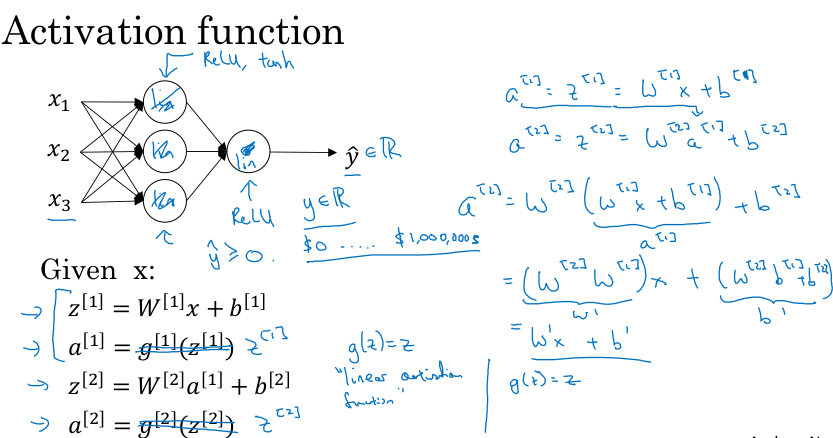 Activation function
ReLU, tanh
x₁
x₂
x₃
lin
ŷ ∈ ℝ
ReLU
ŷ ≥ 0.
y ∈ ℝ
$0 ..... $1,000,000s
Given x:
z^[1] = W^[1]x + b^[1]
a^[1] = g^[1](z^[1]) z^[1]
z^[2] = W^[2]a^[1] + b^[2]
a^[2] = g^[2](z^[2]) z^[2]
g(z) = z
"linear activation
function"
a^[1] = z^[1] = W^[1]x + b^[1]
a^[2] = z^[2] = W^[2]a^[1] + b^[2]
a^[2] = W^[2](W^[1]x + b^[1]) + b^[2]
a^[1]
= (W^[2]W^[1])x + (W^[2]b^[1] + b^[2])
W' b'
= W'x + b'
g(z) = z